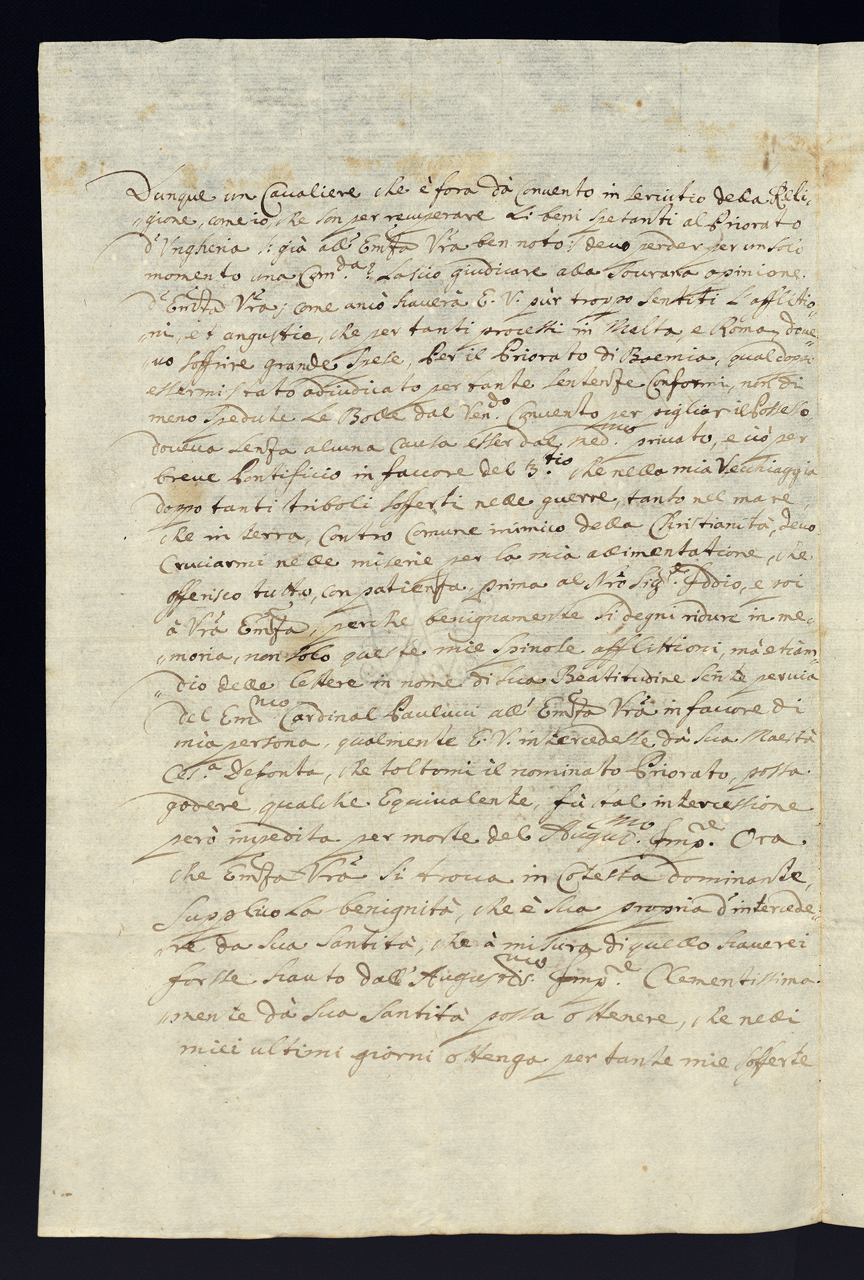 Dunque un Caualiere che è fora dà Conuento in seruitio della Reli„
„gione, come io, che son per recuperare Li beni spetanti al Priorato
d'Vngheria /: già all' Em̃za Vr̃a ben noto :/ deuo perder per un sol
momento una Com.da? Lascio giudicare alla Sourana opinione.
d'Em̃za Vr̃a; come anco hauerà E. V. pur troppo sentiti L'afflitio„
„ni, et angustie, che per tanti processi in Malta, e Roma, doue„
„uo soffrire grande spese, Per il Priorato di Boemia, qual doppo
essermi stato adiudicato per tante sentenze Conformi, non di
meno spedute Le Bolle dal Ven.do Conuento per pigliar il Possesso
doueua senza alcuna Causa esser dal med.mo priuato, e ciò per
breue Pontificio in fauore del 3.tio che nella mia Vecchiaggia
doppo tanti triboli sofferti nelle guerre, tanto nel mare,
che in terra, Contro Comune inimico della Christianità, deuo
Cruciarmi nelle miserie per la mia allimentatione, che
offerisco tutto, con patienza, prima al Nr̃o Sig.re Iddio, e poi
à Vr̃a Em̃za, perche benignamente si degni ridurè in me„
„moria, non solo queste mie spinole afflittioni, mà etiam„
„dio delle lettere in nome di Sua Beatitudine scritte per uia
del Em.mo Cardinal Paulucci all' Em̃za Vr̃a in fauore di
mia persona, qualmente E. V. intercedesse dà Sua Maestà
Ces.a Defonta, che toltomi il nominato Priorato, possa
godere qualche Equiualente, fù tal intercessione
però impedita per morte del August.mo Imp.re Ora
che Em̃za Vr̃a si troua in Cotesta dominante,
supplico La benignità, che è sua propria d'intercede„
„re da Sua Santità, che à misura di quello hauerei
forsse hauto dall' Augustis.mo Imp.re Clementissima„
„mente dà Sua Santità possa ottenere, che nelli
miei ultimi giorni ottenga per tante mie sofferte